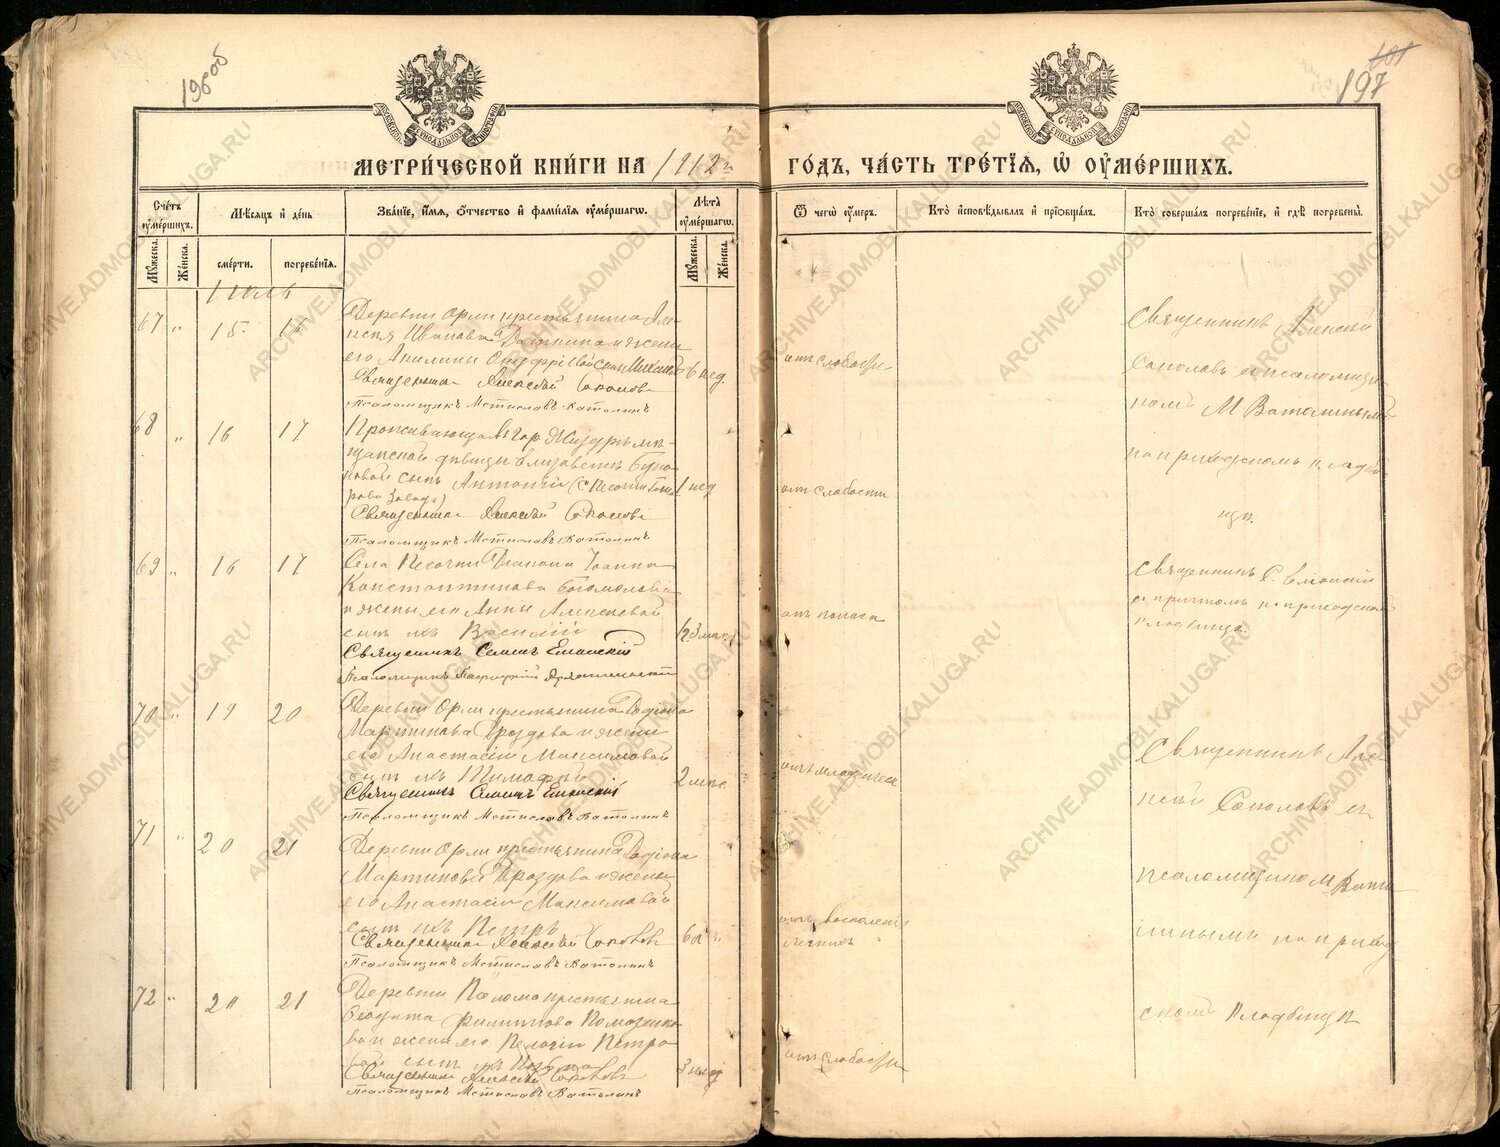 196об
197
МЕТРИ́ЧЕСКОЙ КНИ́ГИ НА 1912 й
ГО́ДЪ, ЧА́СТЬ ТРЕ́ТІЯ, Ѽ ОУМЕ́РШИХЪ.
Сче́тъ оуме́ршихъ.
Мѣ́сяцъ и де́нь
Зва́ніе, и́мя, о́тчество и фами́лія оуме́ршагѡ.
Лѣ́та оуме́ршагѡ.
Ѿ чегѡ̀ оу́меръ.
Кто̀ исповѣ́дывалъ и прїобща́лъ.
Кто̀ соверша́лъ погребе́ніе, и гдѣ̀ погребены̀.
Мꙋ́жеска.
Же́нска.
сме́рти.
погребе́нія.
Мꙋ́жеска.
Же́нска.
Июль
67 " 15. 16
Деревни Орли крестьянина Але-
ксѣя Иванова и жены
его Акилины Онуфріевой сынъ Михаилъ 6 нед.
Священникъ Алексѣй Соколовъ
Псаломщикъ Мстиславъ Ватолинъ
отъ слабости
Священникъ Алексѣй
Соколовъ съ псаломщи-
комъ М Ватолинымъ
на приходскомъ кладби
щѣ.
68 " 16 17
Проживающей въ гор. Жиздрѣ мѣ-
щанской дѣвицы Елизаветы
сынъ Антоній 1 нед
Священникъ Алексѣй Соколовъ
Псаломщикъ Мстиславъ Ватолинъ
отъ слабости
69 " 16 17
Села Песочни Діакона Іоанна
Константинова Богомолова
и жены его Анны Алексѣевой
сынъ ихъ Василій
Священникъ Симонъ
Псаломщикъ
отъ поноса
Священникъ С.
съ причтомъ на приходскомъ
кладбищѣ
70 " 19 20
Деревни Орли крестьянина Родіона
Мартинова Дроздова и жены
его Анастасіи Максимовой
сынъ ихъ Тимофей 2 мѣс.
Священникъ Симонъ
Псаломщикъ Мстиславъ Ватолинъ
отъ младенческ
Священникъ Але
ксѣй Соколовъ съ
псаломщикомъ М Вато
линымъ на приход
скомъ кладбищѣ
71 " 20 21
Деревни Орли крестьянина Родіона
Мартинова Дроздова и жены
его Анастасіи Максимовой
сынъ ихъ Петръ
Священникъ Алексѣй Соколовъ
Псаломщикъ Мстиславъ Ватолинъ
отъ воспаленія
легкихъ
72 " 20 21
Деревни Полома крестьянина
Филиппова
и жены его Пелагіи Петро
вой сынъ ихъ 3 нед
Священникъ Алексѣй Соколовъ
Псаломщикъ Мстиславъ Ватолинъ
отъ слабости
ARCHIVE.ADMOBLKALUGA.RU